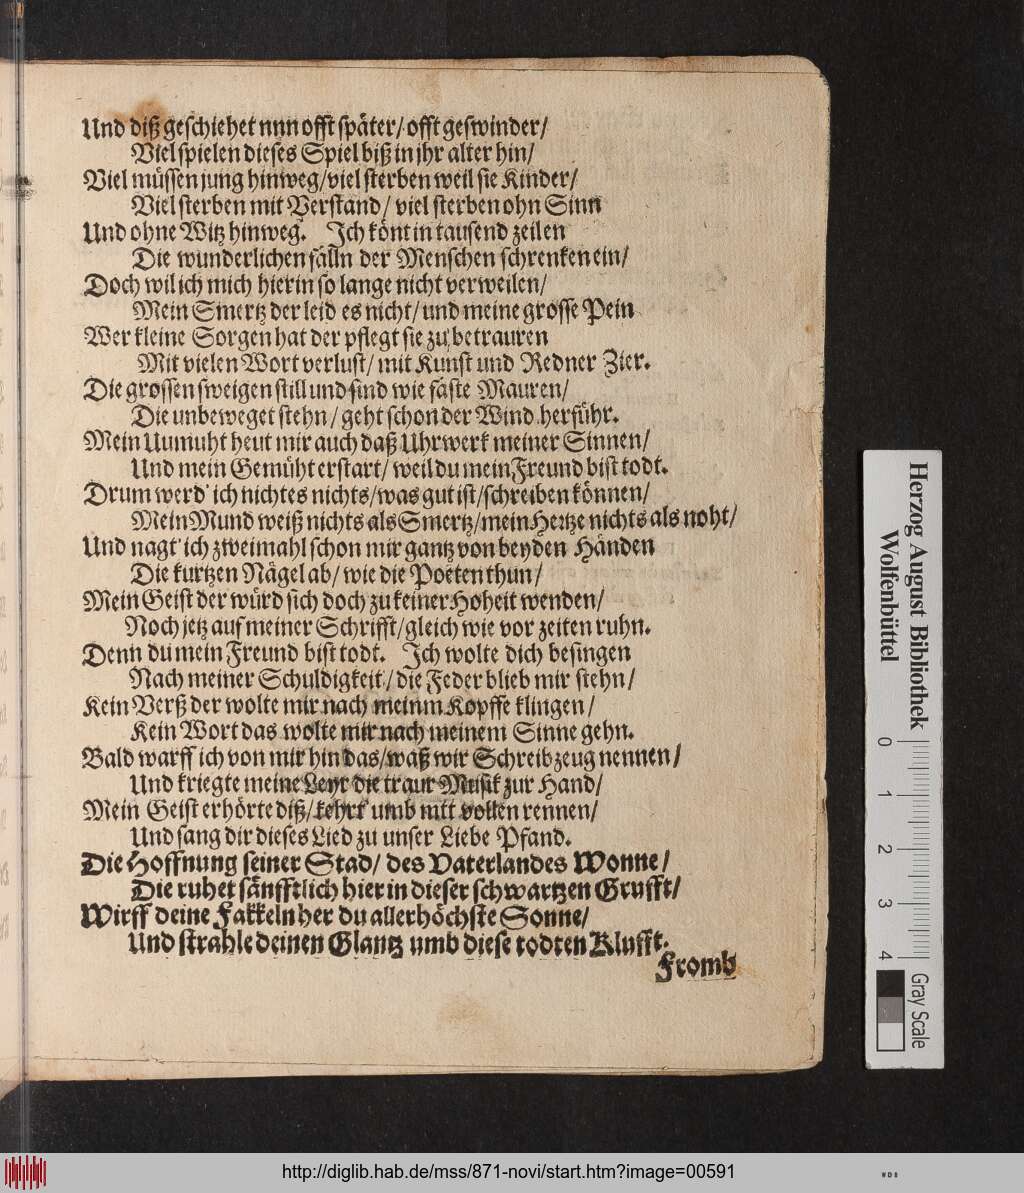 Und diß geschiehet nun offt später/ offt geswinder/
Viel spielen dieses Spiel biß in jhr alter hin/
Viel müssen jung hinweg/ viel sterben weil sie Kinder/
Viel sterben mit Verstand/ viel sterben ohn Sinn
Und ohne Witz hinweg. Ich könt in tausend zeilen
Die wunderlichen fälln der Menschen schrenken ein/
Doch wil ich mich hierin so lange nicht verweilen/
Mein Smertz der leid es nicht/ und meine grosse Pein
Wer kleine Sorgen hat der pflegt sie zu betrauren
Mit vielen Wort verlust/ mit Kunst und Redner Zier.
Die grossen sweigen still und sind wie faste Mauren/
Die unbeweget stehn/ geht schon der Wind herführ.
Mein Unmuht heut mir auch daß Uhrwerk meiner Sinnen/
Und mein Gemüht erstart/ weil du mein Freund bist todt.
Drum werd' ich nichtes nichts/ was gut ist/ schreiben können/
Mein Mund weiß nichts als Smertz/ mein Hertze nichts als noht/
Und nagt' ich zweimahl schon mir gantz von beyden Händen
Die kurtzen Nägel ab/ wie die Poeten thun/
Mein Geist der würd sich doch zu keiner Hoheit wenden/
Noch jetz auf meiner Schrifft/ gleich wie vor zeiten ruhn.
Denn du mein Freund bist todt. Ich wolte dich besingen
Nach meiner Schuldigkeit/ die Feder blieb mir stehn/
Kein Verß der wolte mir nach meinm Kopffe klingen/
Kein Wort das wolte mir nach meinem Sinne gehn.
Bald warff ich von mir hin das/ waß wir Schreibzeug nennen/
Und kriegte meine Leyr die traur Musik zur Hand/
Mein Geist erhörte diß/ kehrt' umb mit vollen rennen/
Und sang dir dieses Lied zu unser Liebe Pfand.
Die Hoffnung seiner Stad/ des Vaterlandes Wonne/
Die ruhet sänfftlich hier in dieser schwartzen Grufft/
Wirff deine Fakkeln her du allerhöchste Sonne/
Und strahle deinen Glantz umb diese todten Klufft.
Fromb
Herzog August Bibliothek
Wolfenbüttel
0 1 2 3 4
Gray Scale
http://diglib.hab.de/mss/871-novi/start.htm?image=00591